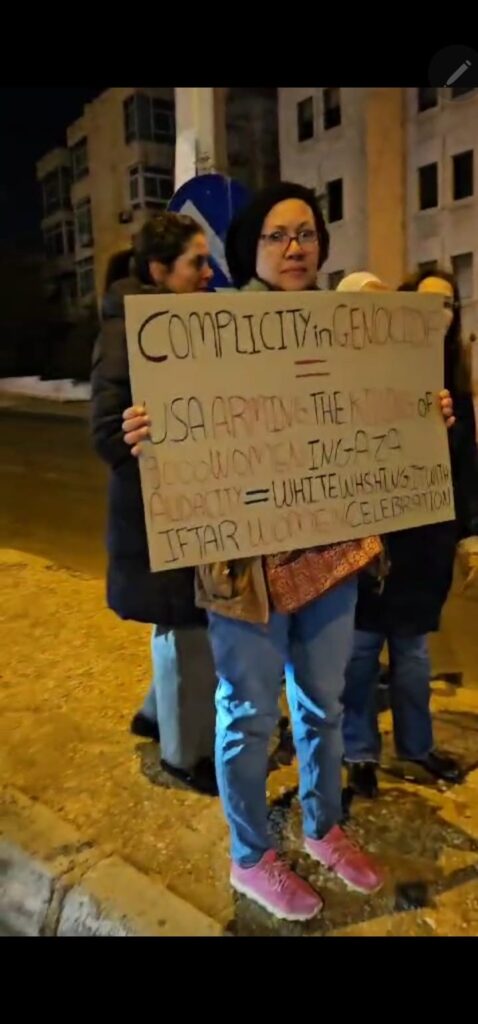 COMPLICITY in GENOCIDE
=
USA ARMING THE KILLING OF
9000 WOMEN IN GAZA
AUDACITY = WHITEWHSHING IT WITH
IFTAR WOMEN CELEBRATION